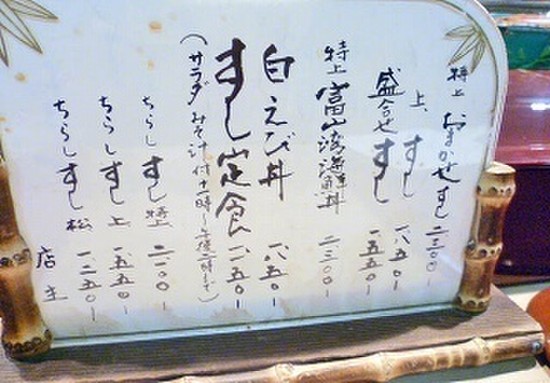 特上 おまかせすし 二三〇〇ー
上、すし 一、八五〇ー
盛合せすし 一、五五〇ー
特上 富山湾海鮮丼 二、三〇〇ー
白えび丼 一、八五〇ー
すし定食 一、一五〇ー
(サラダ みそ汁付 十一時〜午後二時まで)
ちらしすし 特上 二一〇〇ー
ちらしすし 上 一、五五〇ー
ちらしすし 松 一、二五〇ー
店主